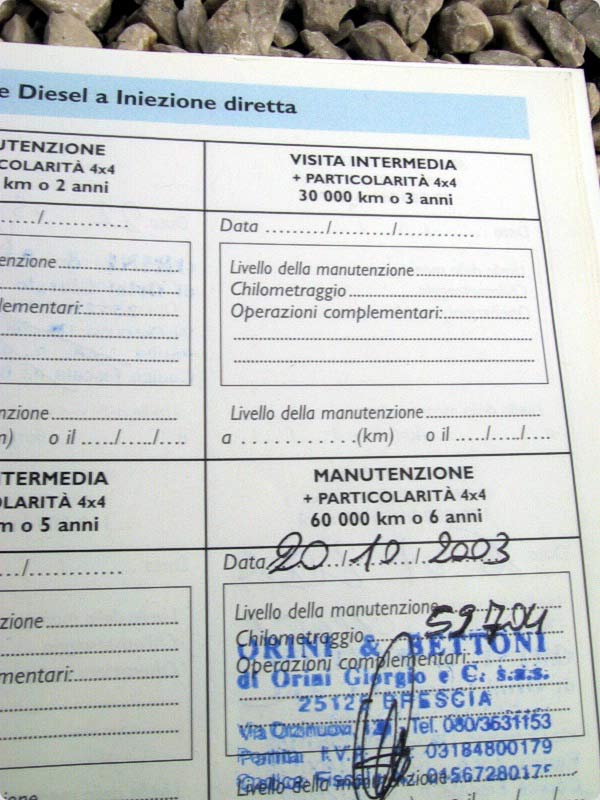 e Diesel a Iniezione diretta
UTENZIONE
COLARITÀ 4x4
km o 2 anni
VISITA INTERMEDIA
+ PARTICOLARITÀ 4x4
30 000 km o 3 anni
..../............
Data ........./........./............
enzione
lementari:
Livello della manutenzione
Chilometraggio
Operazioni complementari:
nzione
m) o il ...../...../....
Livello della manutenzione
a . . . . . . . . . . .(km) o il ...../...../....
TERMEDIA
OLARITÀ 4x4
m o 5 anni
MANUTENZIONE
+ PARTICOLARITÀ 4x4
60 000 km o 6 anni
.../............
Data 20/10/2003
zione
mentari:
Livello della manutenzione
Chilometraggio 59704
ORINI & BETTONI
Operazioni complementari:
di Orini Giorgio e C. s.a.s.
BRESCIA
Tel. 030/3531153
Partita I.V.A. 03184800179
Livello della manutenzione